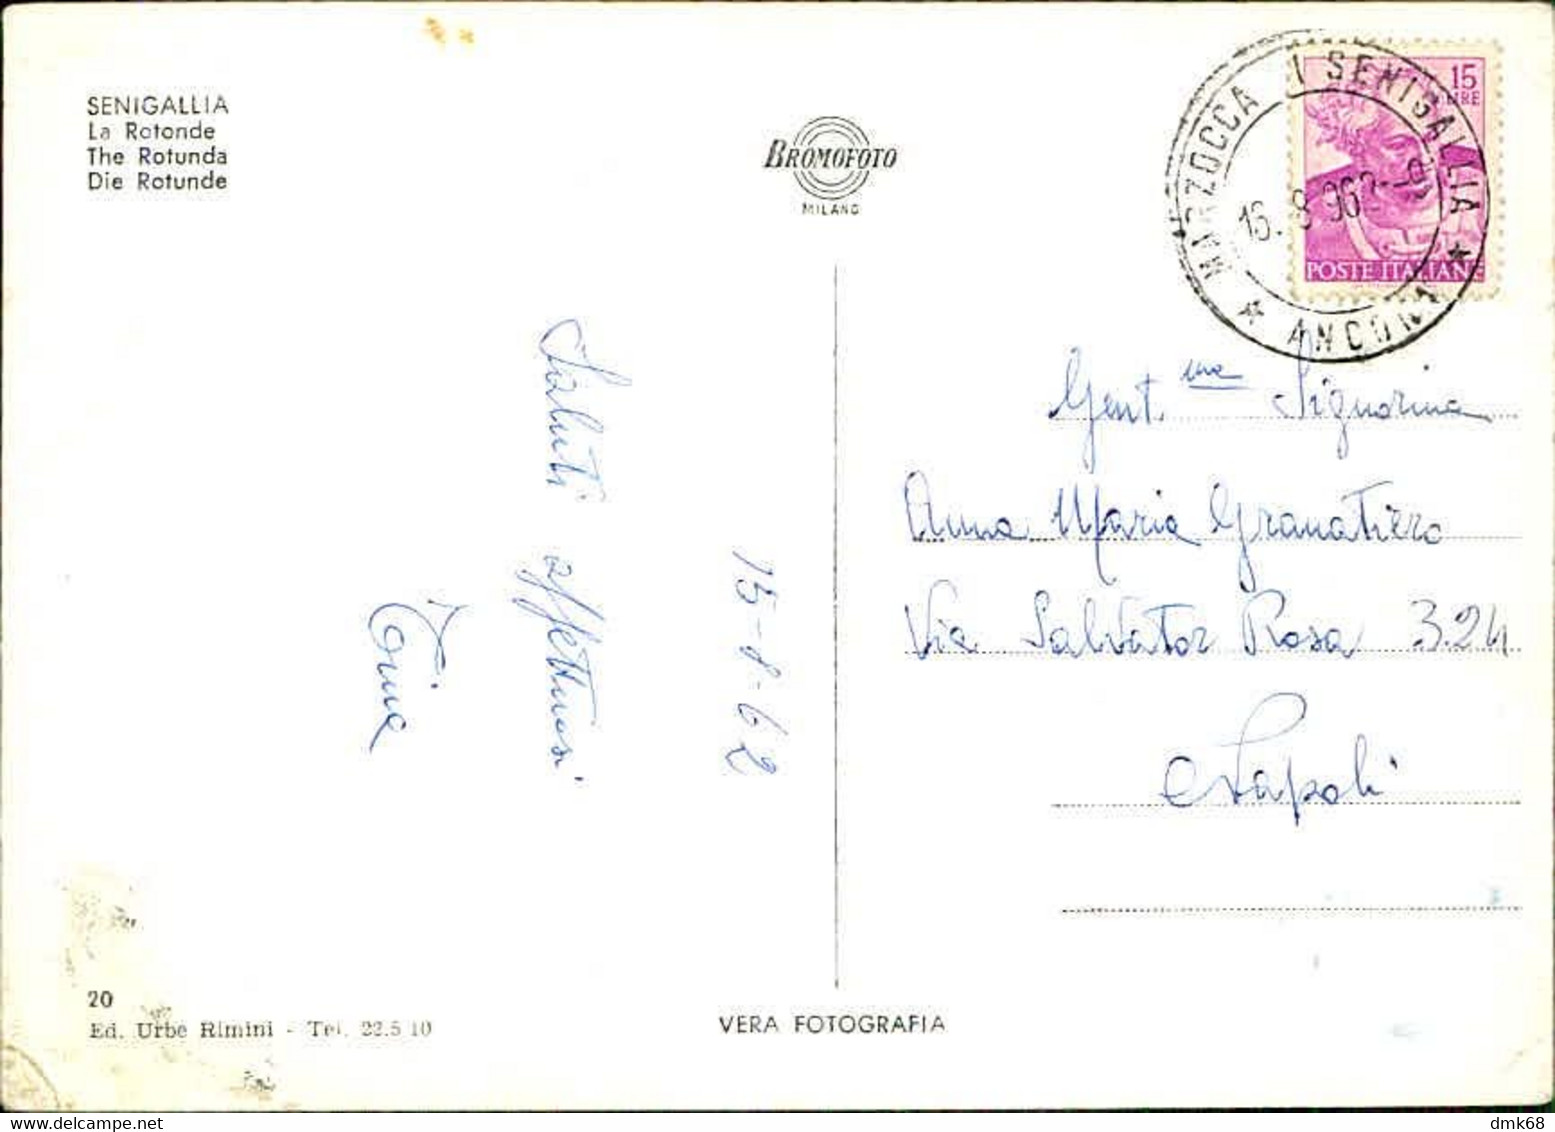 SENIGALLIA
La Rotonde
The Rotunda
Die Rotunde
BROMOFOTO
MILANO
15
LIRE
POSTE ITALIANE
MARZOCCA I SENIGALLIA
16.8.962
* ANCONA *
Saluti affettuosi
Tina
15-8-62
Gent.ma Signorina
Anna Maria Granatiero
Via Salvator Rosa 324
Napoli
20
Ed. Urbe Rimini - Tel. 22.5 10
VERA FOTOGRAFIA
delcampe.net
dmk68